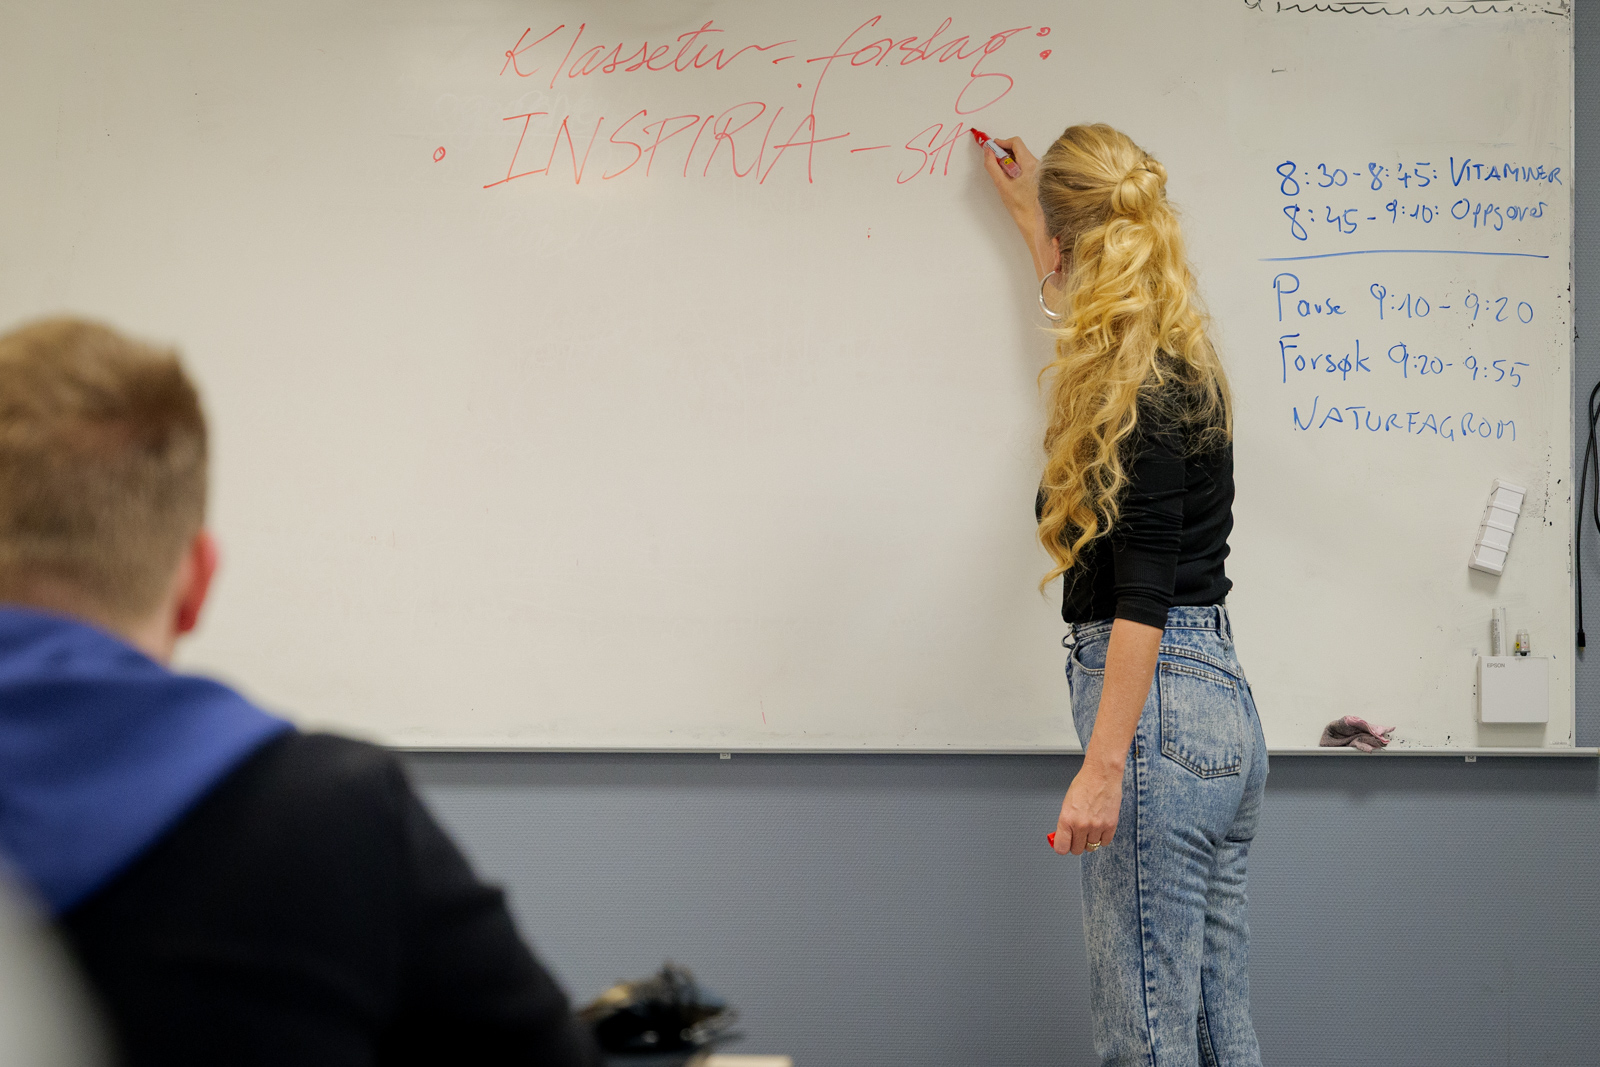 Klassetur-forslag:
• INSPIRIA - SA
8:30-8:45: VITAMINER
8:45-9:10: Oppgaver
Pause 9:10-9:20
Forsøk 9:20-9:55
NATURFAGROM
EPSON